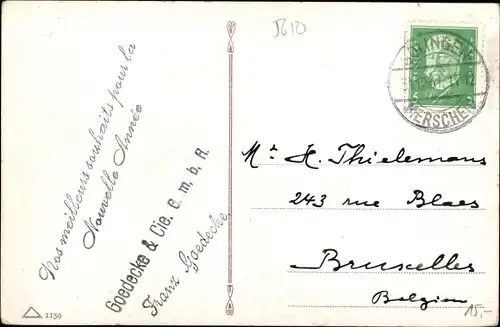 5610
Nos meilleurs souhaits pour la
Nouvelle Année
Goedecke & Cie. G. m. b. H.
Franz Goedecke
1159
5
MERSCHEI
Mr H. Thielemans
243 rue Blaes
Bruxelles
Belgien
15,-